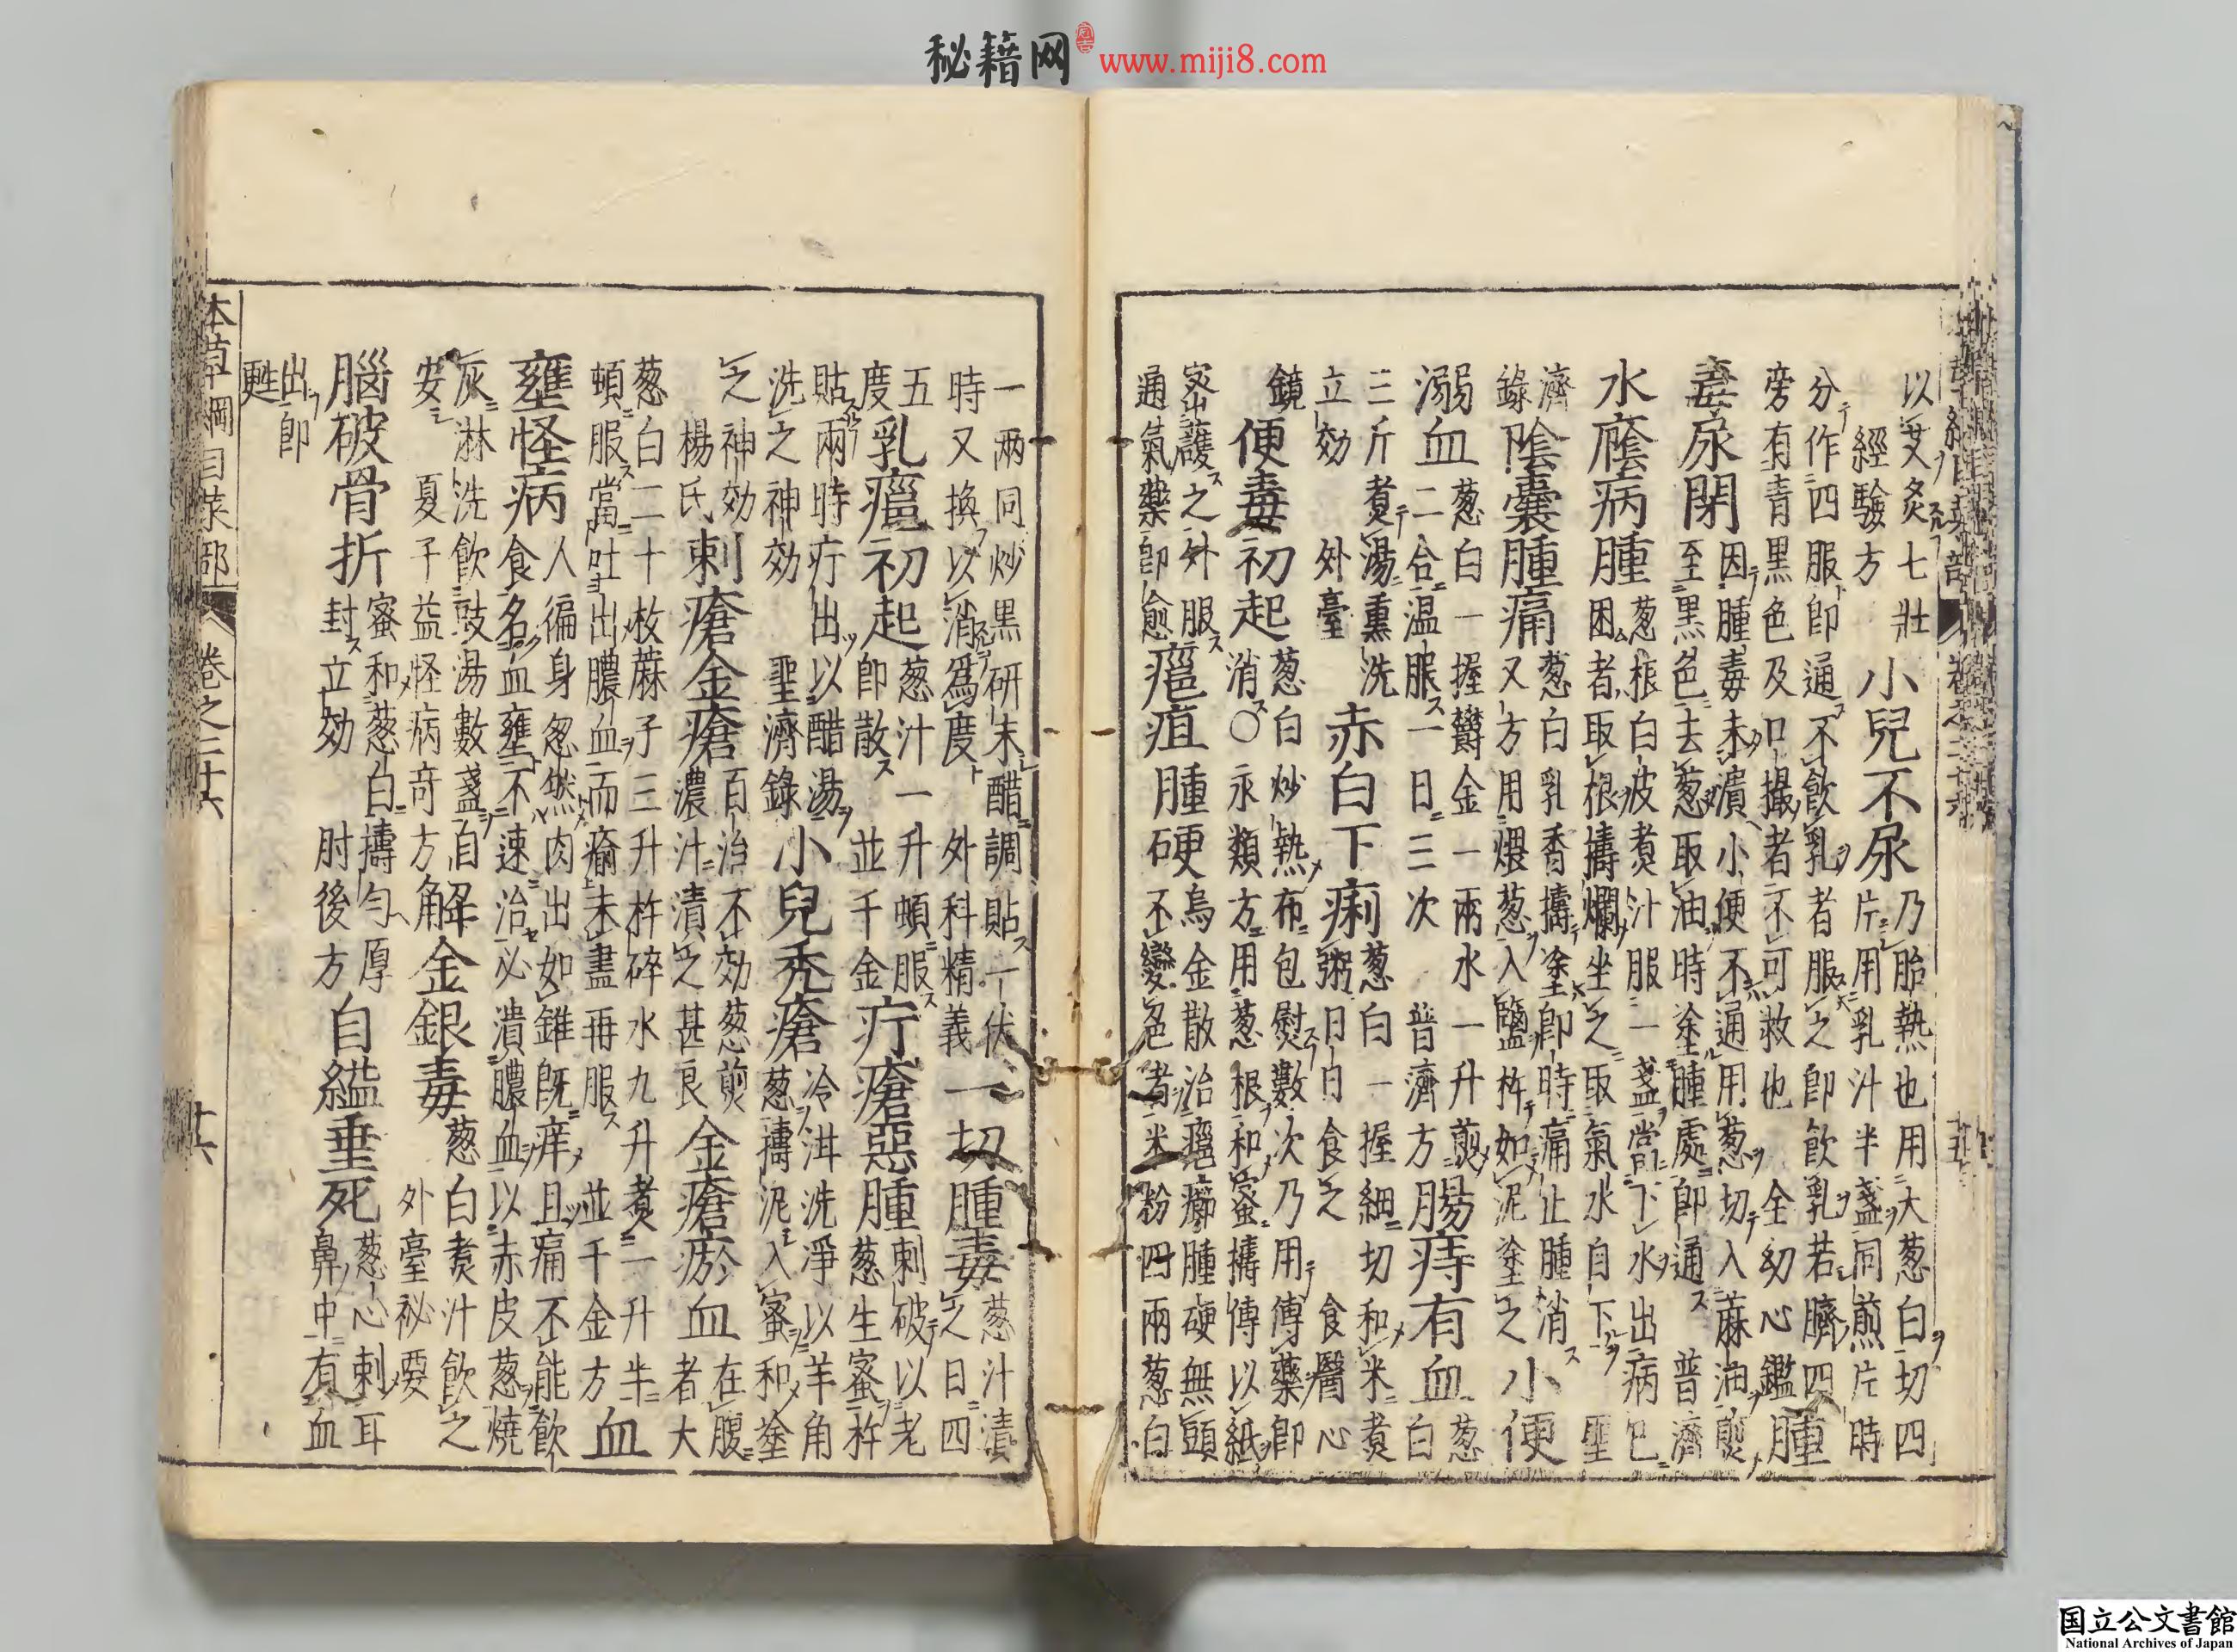 秘籍网 www.miji8.com
以艾灸七壯
經驗方
小兒不尿
乃胎熱也用大葱白切四
片用乳汁半盞同煎片時
分作四服即通不飲乳者服之即飲乳若臍四
旁有青黑色及口撮者不可救也 全幼心鑑
腫
毒尿閉
因腫毒未潰小便不通用葱切入蔴油煎
至黑色去葱取油時塗腫處即通 普濟
水癊病腫
葱根白皮煑汁服一盞當下水出病已
困者取根搗爛坐之取氣水自下 聖
濟
錄
陰囊腫痛
葱白乳香搗塗即時痛止腫消
又方用煨葱入鹽杵如泥塗之
小便
溺血
葱白一握鬱金一兩水一升煎
二合温服一日三次 普濟方
腸痔有血
葱
白
三斤煑湯熏洗
立効 外臺
赤白下痢
葱白一握細切和米煑
粥日日食之 食醫心
鏡
便毒初起
葱白炒熱布包熨數次乃用傅藥即
消○永類方用葱根和蜜搗傅以紙
密護之外服
通氣藥即愈
癰疽腫硬
烏金散治癰癤腫硬無頭
不變色者米粉四兩葱白
一兩同炒黑研末醋調貼一伏
時又換以消爲度 外科精義
一切腫毒
葱汁漬
之日四
五
度
乳癰初起
葱汁一升頓服
即散 並千金
疔瘡惡腫
刺破以老
葱生蜜杵
貼兩時疔出以醋湯
洗之神効 聖濟錄
小兒秃瘡
冷泔洗淨以羊角
葱搗泥入蜜和塗
之神効
楊氏
刺瘡金瘡
百治不効葱煎
濃汁漬之甚良
金瘡瘀血
在腹
者大
葱白二十枚蔴子三升杵碎水九升煑一升半
頓服當吐出膿血而瘉未盡再服 並千金方
血
壅怪病
人徧身忽然肉出如錐既痒且痛不能飲
食名血壅不速治必潰膿血以赤皮葱燒
灰淋洗飲豉湯數盞自
安 夏子益怪病奇方
解金銀毒
葱白煑汁飲之
外臺祕要
腦破骨折
蜜和葱白搗勻厚
封立効 肘後方
自縊垂死
葱心刺耳
鼻中有血
出即
甦
本草綱目菜部 卷之二十六 十六
国立公文書館
National Archives of Japan